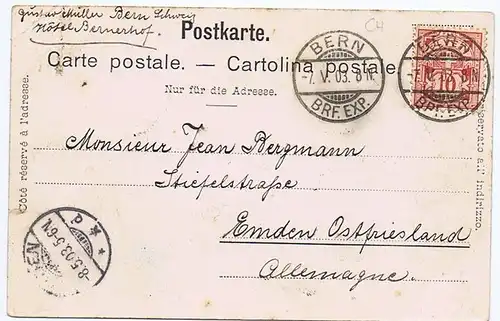 Gustav Müller Bern Schweiz
Hôtel Bernerhof.
CH
Postkarte.
Carte postale. — Cartolina postale.
Nur für die Adresse.
BERN
-7.V.03. 8
BRF. EXP.
BERN
10
BRF. EXP.
Côté réservé à l'adresse.
riservato all' indirizzo.
Monsieur Jean Bergmann
Stiefelstraße
Emden Ostfriesland
Allemagne.
8.5.03.5-6N